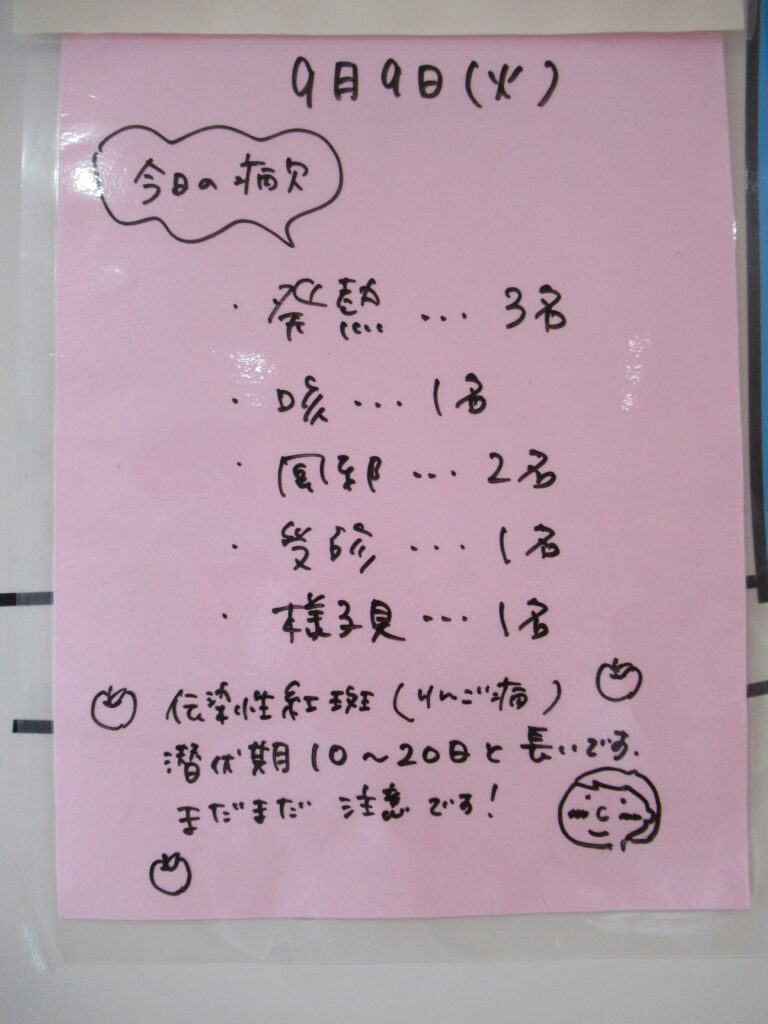 9月9日(火)
今日の病欠
・発熱…3名
・咳…1名
・風邪…2名
・受診…1名
・様子見…1名
伝染性紅斑(りんご病)
潜伏期10~20日と長いです.
まだまだ注意です!